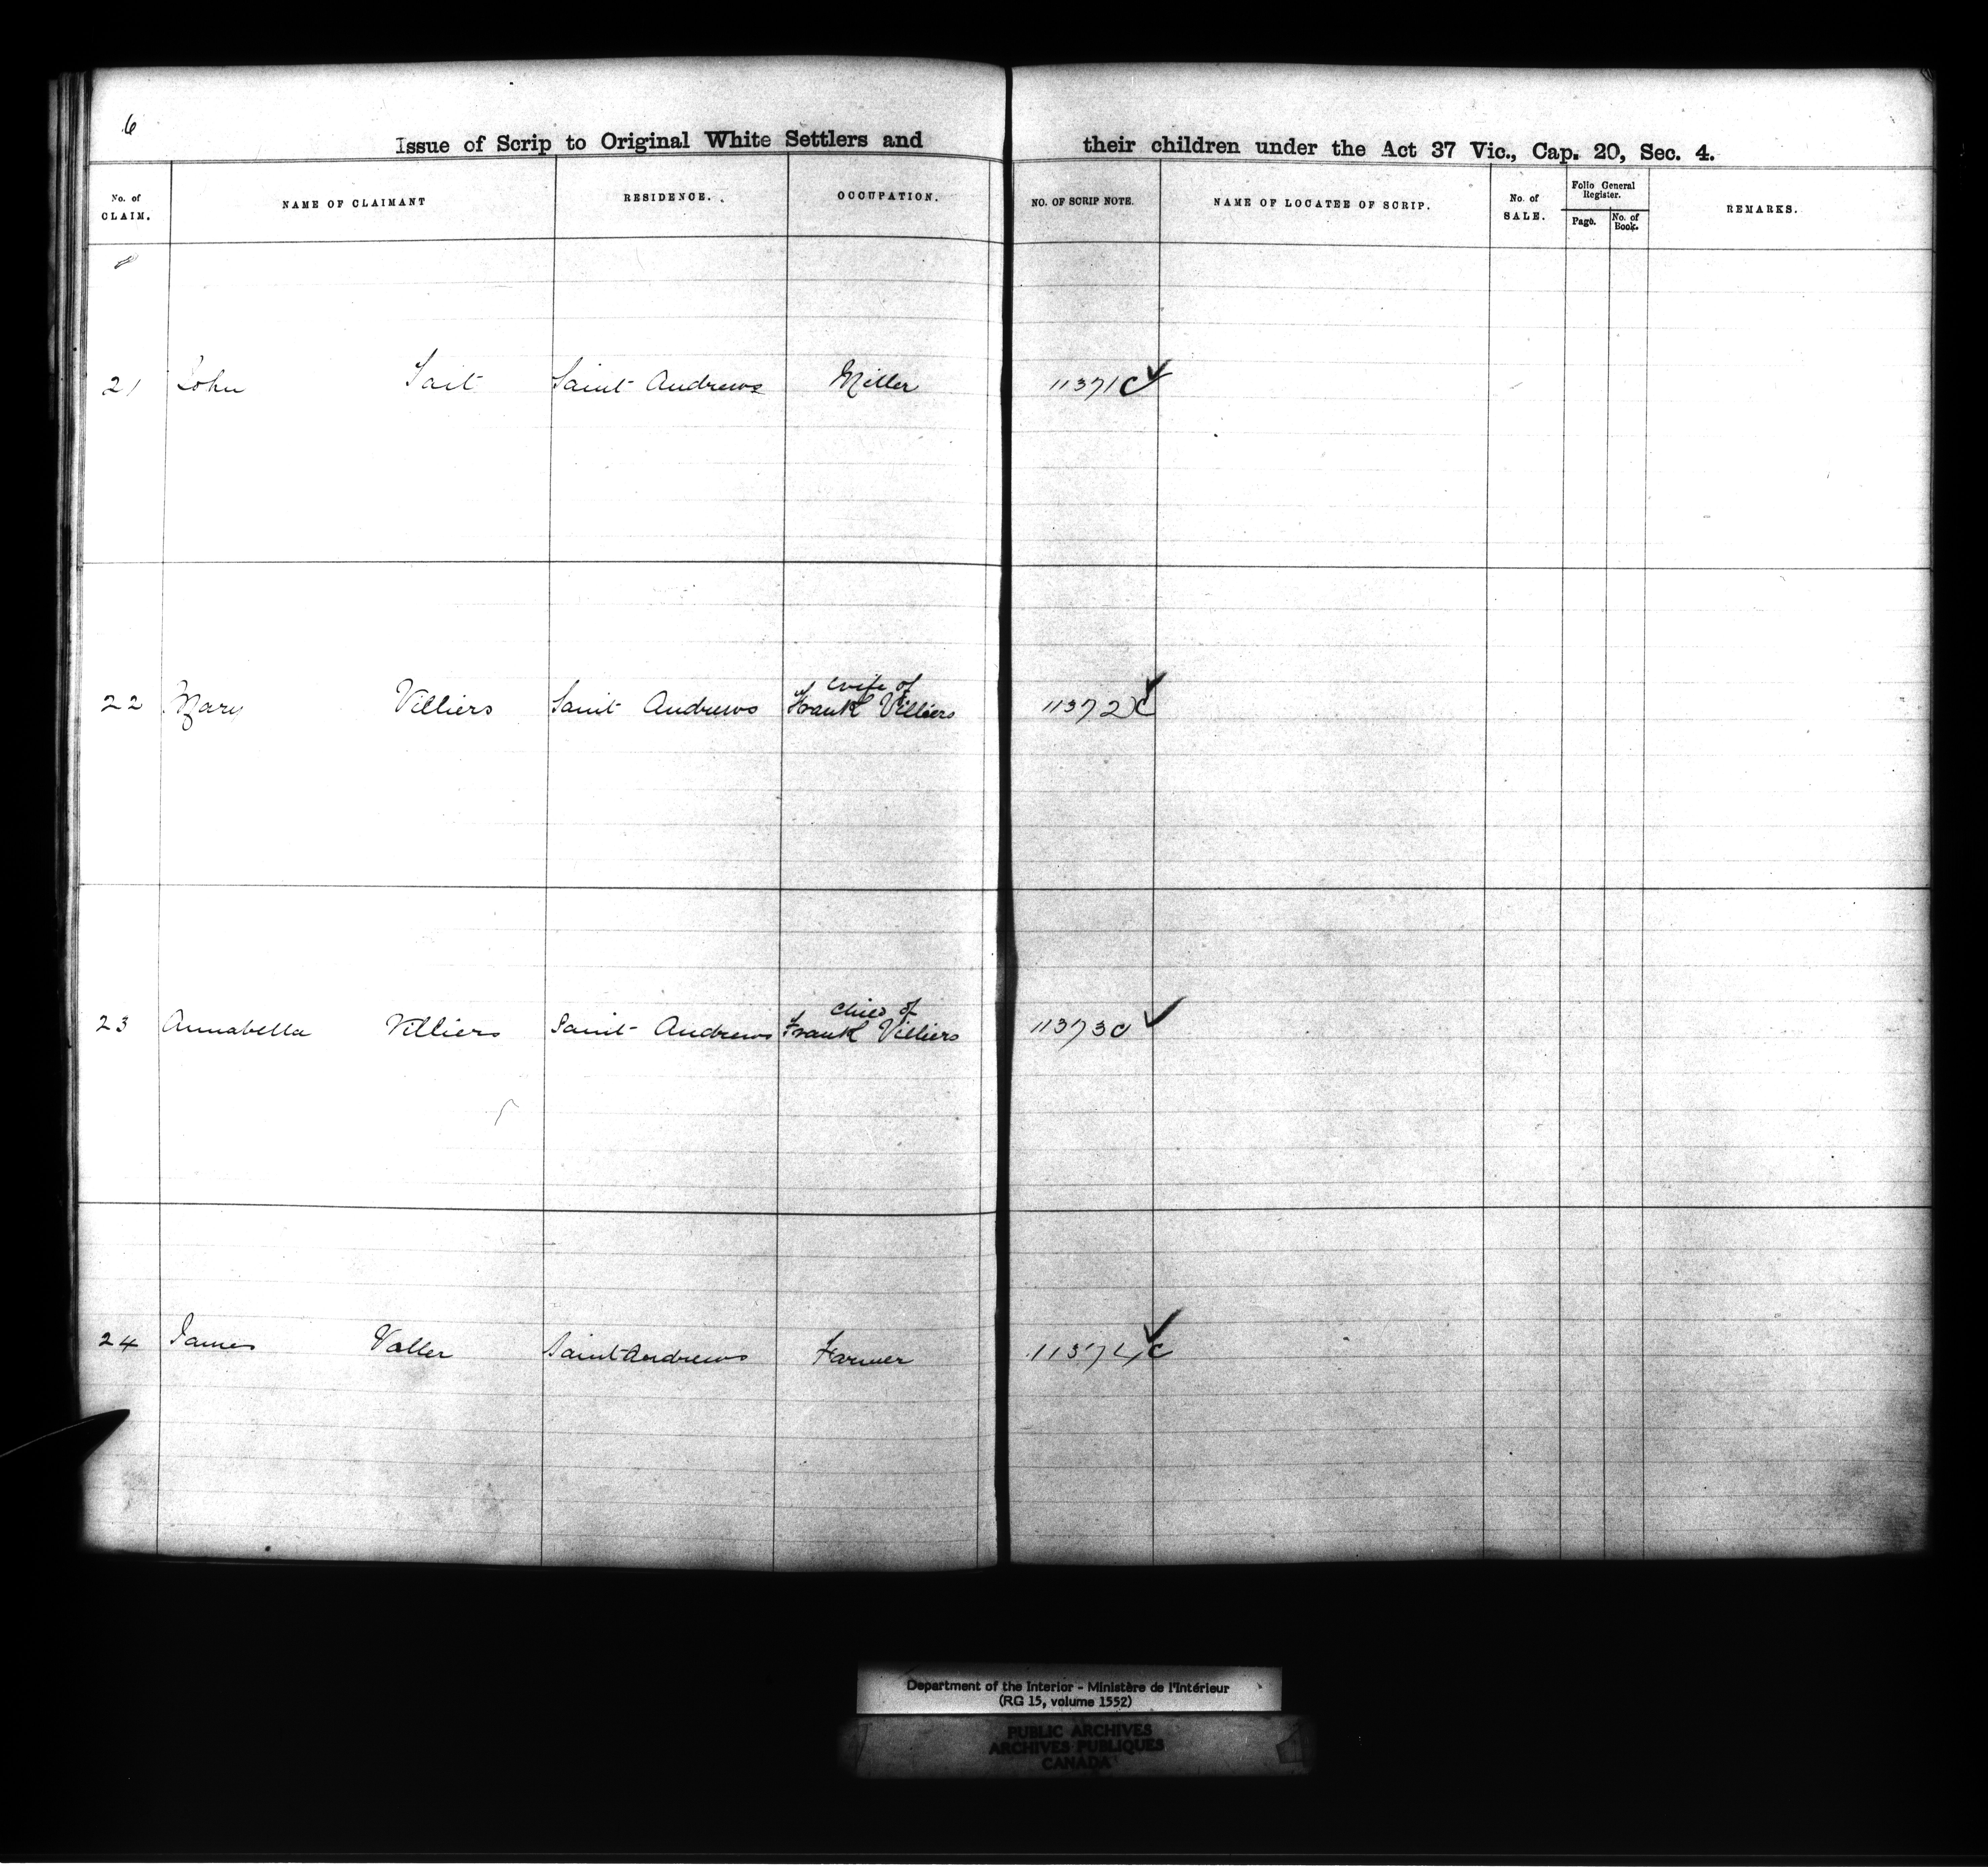 6
Issue of Scrip to Original White Settlers and their children under the Act 37 Vic., Cap. 20, Sec. 4.
No. of CLAIM. NAME OF CLAIMANT RESIDENCE. OCCUPATION. NO. OF SCRIP NOTE. NAME OF LOCATEE OF SCRIP. No. of SALE. Folio General Register. Page. No. of Book. REMARKS.
21 John Tait Saint Andrews Miller 11371 C
22 Mary Villiers Saint Andrews wife of Frank Villiers 11372 C
23 Annabella Villiers Saint Andrews child of Frank Villiers 11373 C
24 James Voller Saint Andrews Farmer 11374 C
Department of the Interior - Ministère de l'Intérieur
(RG 15, volume 1552)
PUBLIC ARCHIVES
ARCHIVES PUBLIQUES
CANADA